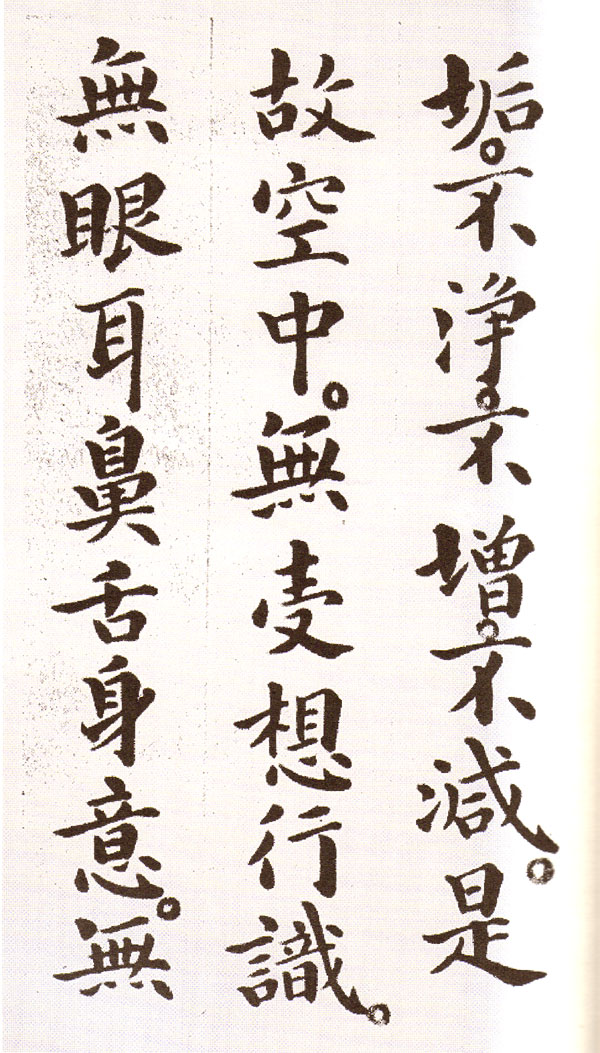 垢。不淨。不増。不減。是
故空中。無受想行識。
無眼耳鼻舌身意。無